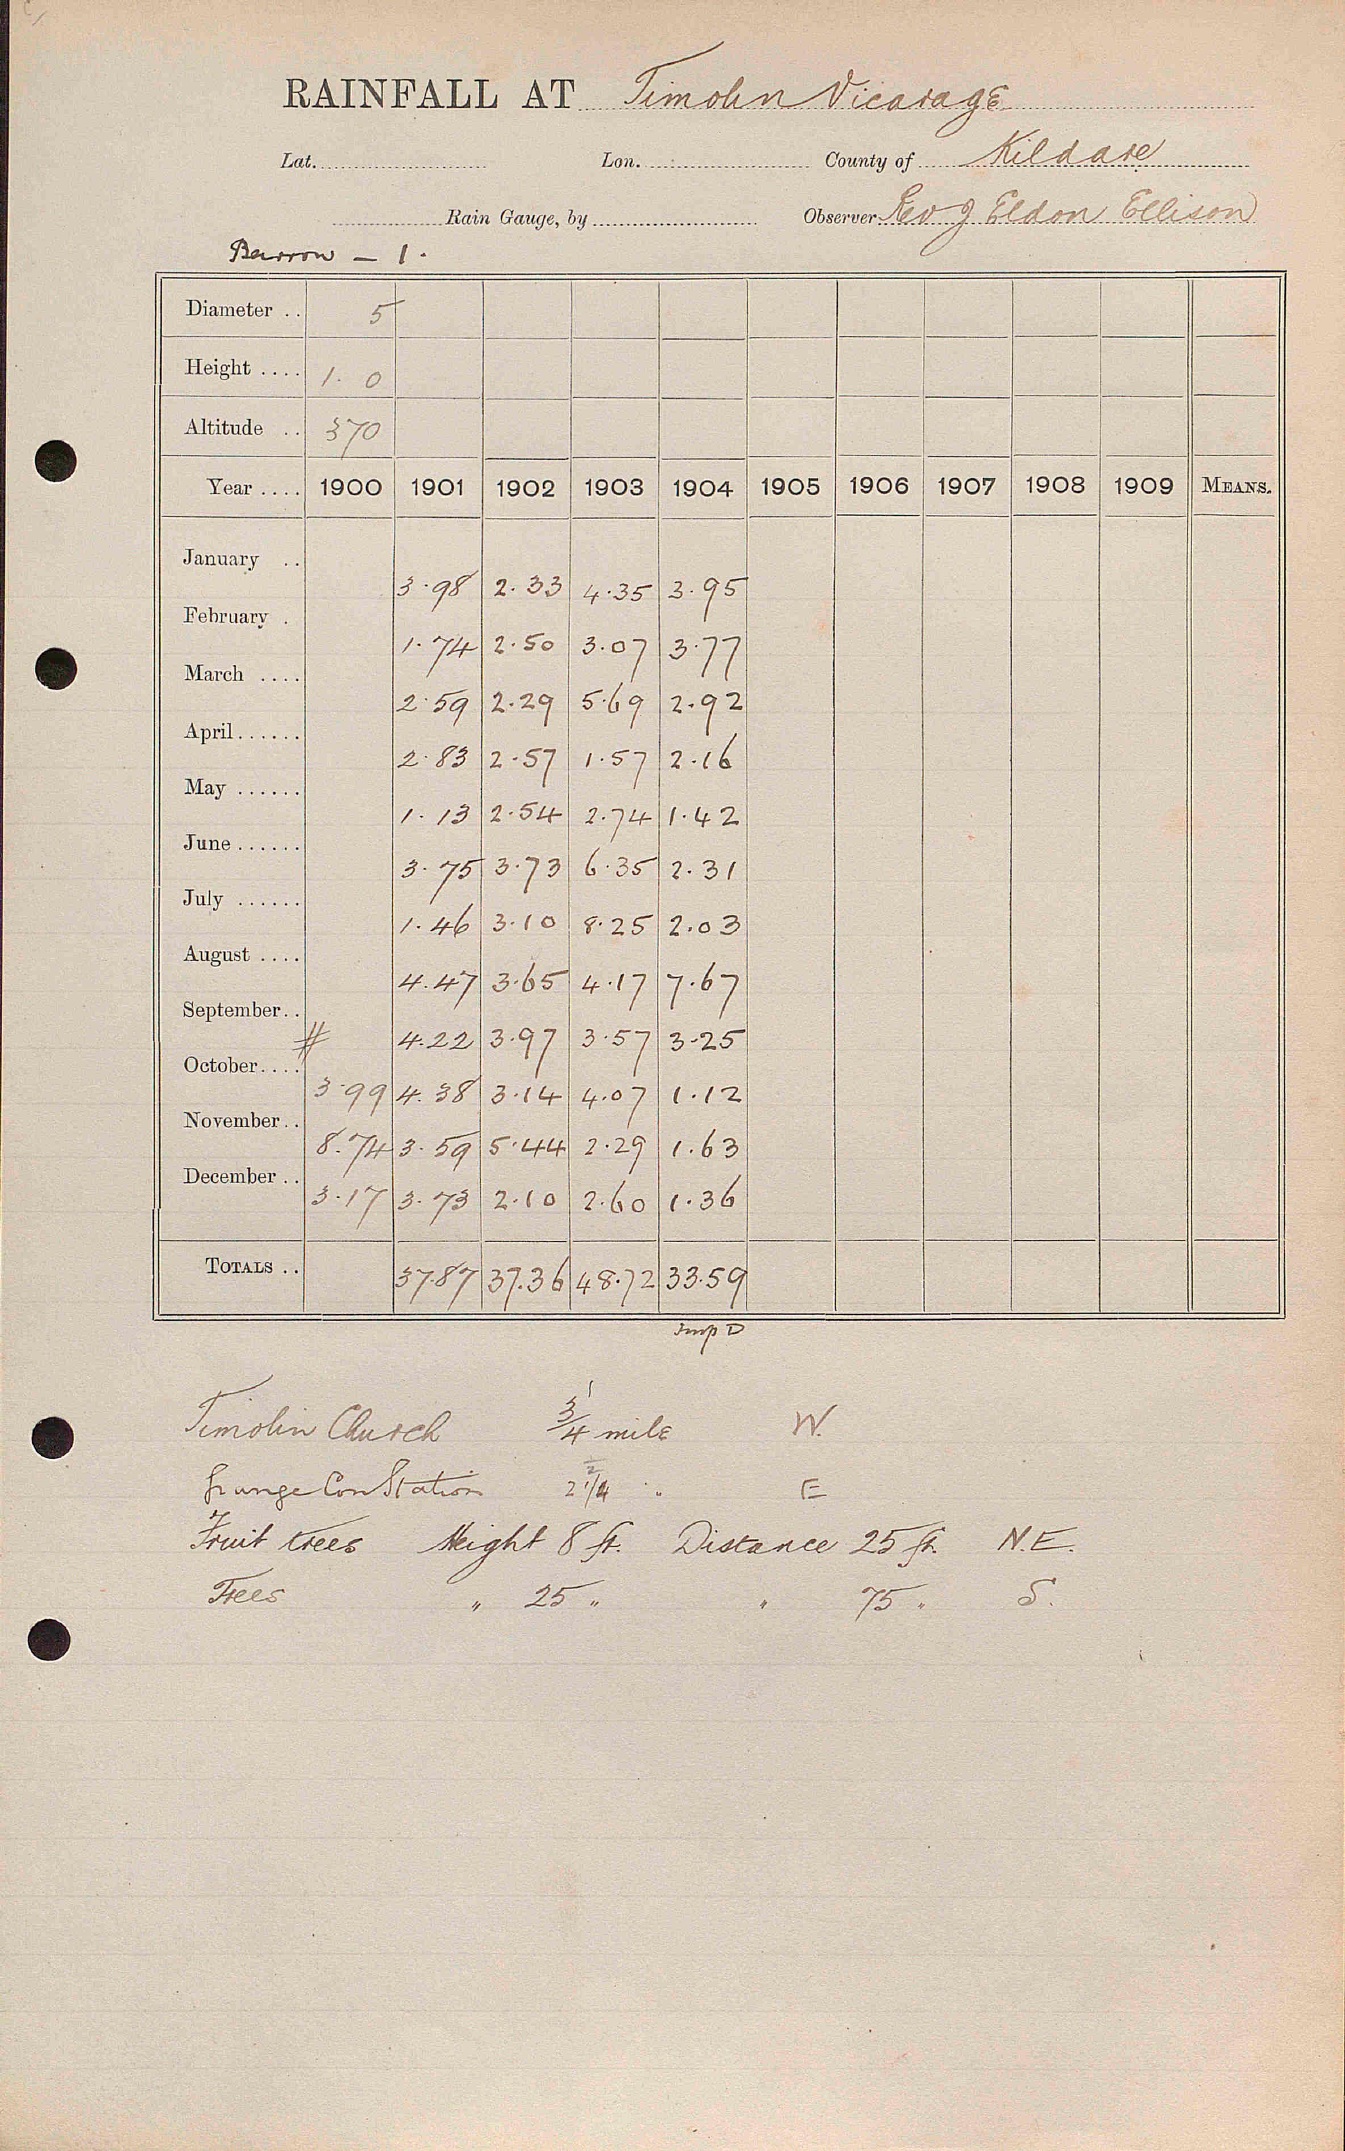 RAINFALL AT Timolin Vicarage
Lat. Lon. County of Kildare
Rain Gauge, by Observer Rev J Eldon Ellison
Barrow - 1.
Diameter .. 5
Height .... 1. 0
Altitude .. 370
Year .... 1900 1901 1902 1903 1904 1905 1906 1907 1908 1909 MEANS.
January .. 3.98 2.33 4.35 3.95
February . 1.74 2.50 3.07 3.77
March .... 2.59 2.29 5.69 2.92
April...... 2.83 2.57 1.57 2.16
May ...... 1.13 2.54 2.74 1.42
June...... 3.75 3.73 6.35 2.31
July ...... 1.46 3.10 8.25 2.03
August .... 4.47 3.65 4.17 7.67
September.. # 4.22 3.97 3.57 3.25
October.... 3.99 4.38 3.14 4.07 1.12
November.. 8.74 3.59 5.44 2.29 1.63
December .. 3.17 3.73 2.10 2.60 1.36
TOTALS .. 37.87 37.36 48.72 33.59
Imp D
Timolin Church 3/4 mile W.
Grange Con Station 2 1/4 " E
Fruit trees Height 8 ft. Distance 25 ft. N.E.
Trees " 25 " " 75 " S.